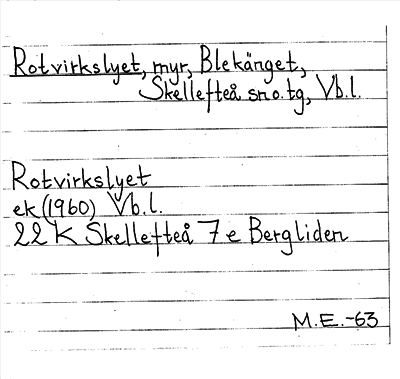 Rotvirkslyet, myr, Blekänget,
Skellefteå sn o. tg, Vb. l.
Rotvirkslyet
ek (1960) Vb. l.
22 K Skellefteå 7 e Bergliden
M.E. -63